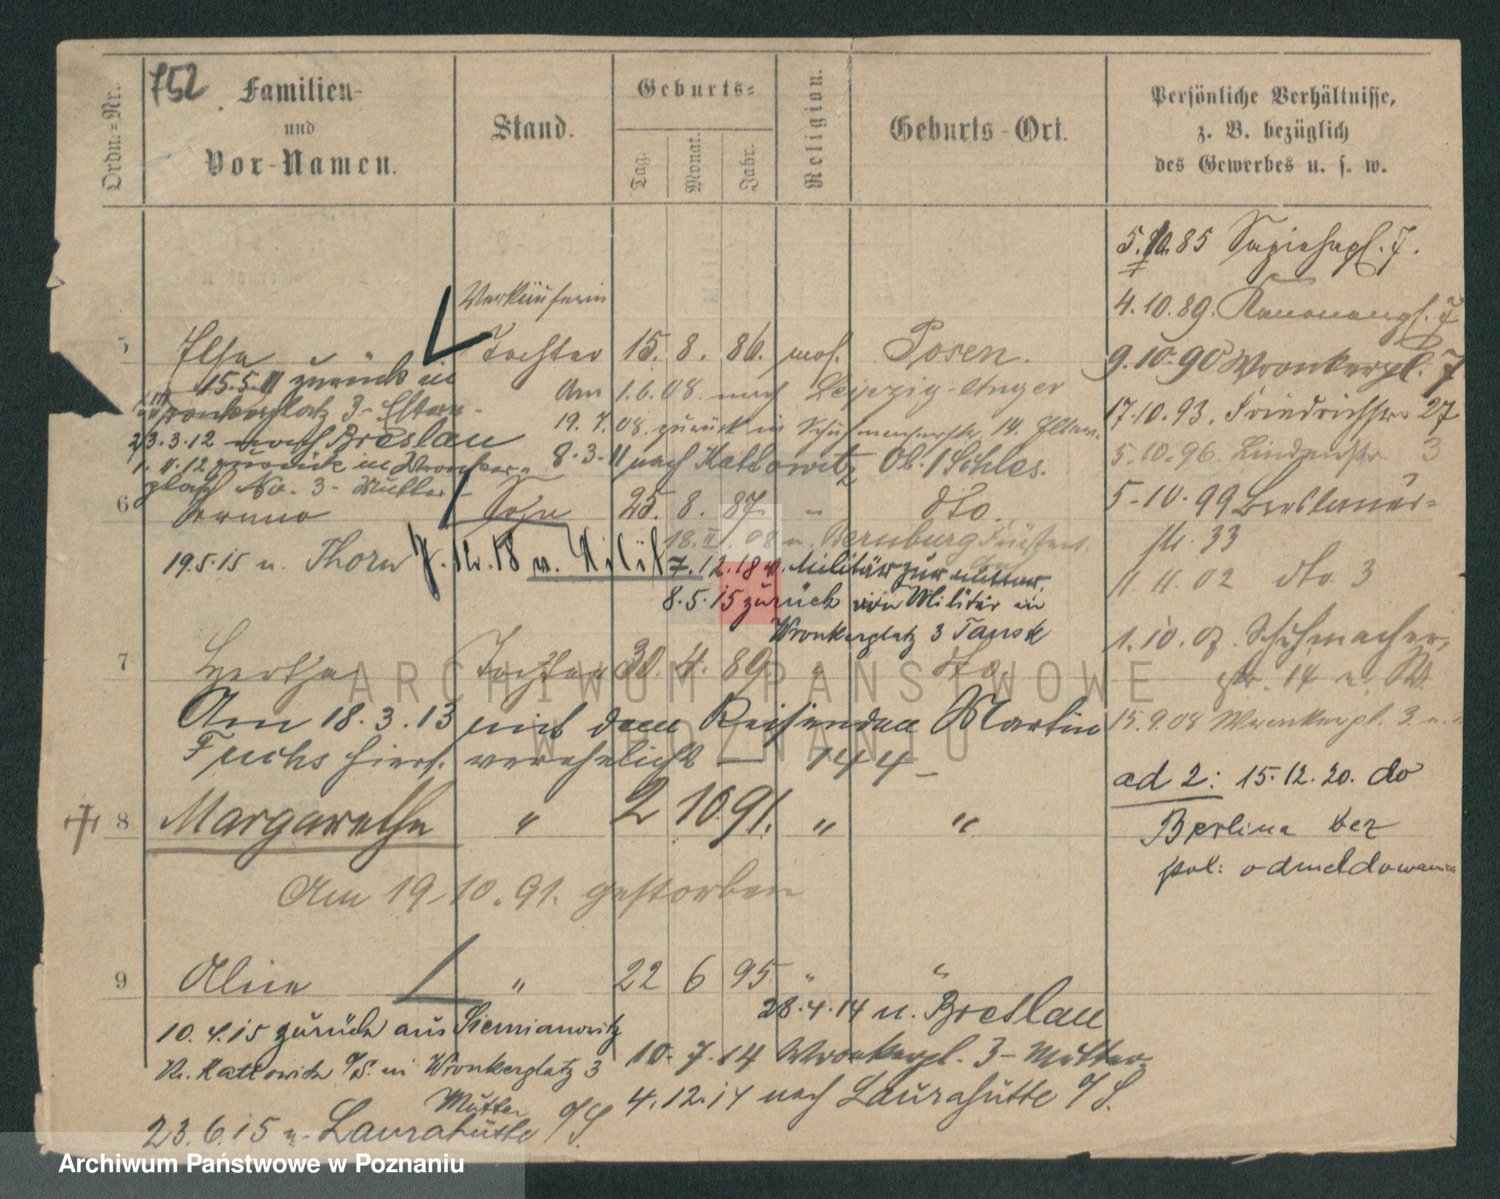 752
Ordn.-Nr.
Familien-
und
Vor-Namen.
Stand.
Geburts-
Tag.
Monat.
Jahr.
Religion.
Geburts-Ort.
Persönliche Verhältnisse,
z. B. bezüglich
des Gewerbes u. s. w.
5.10.85
4.10.89.
9.10.90 Wronkerpl. 7
17.10.93. Friedrichstr. 27
5.10.96. Lindenstr. 3
5.10.99 Breslauer-
str. 33
11 4. 02 dto 3
1.10.07. Schuhmacher-
str. 14
15.9.08 Wronkerpl. 3.
ad 2: 15.12.20. do
Berlina bez
pol: odmeldowania
Verkäuferin
5 Elsa Tochter 15. 8. 86. mos. Posen.
15.5.11 zurück in
Wronkerplatz 3 - Eltern -
23.3.12 nach Breslau
1.4.12 zurück in Wronker-
platz No. 3 - Mutter -
Am 1.6.08. nach Leipzig-Anger
19.7.08 zurück in Schuhmacherstr. 14. Eltern
8.3.11 nach Kattowitz Ob./Schles.
6 Bruno Sohn 25. 8. 87. " dto.
19.5.15 n. Thorn
7.12.18 v. Militär
Bernburg
7.12.18 v. Militär zur Mutter
8.5.15 zurück vom Militär in
Wronkerplatz 3
7 Hertha Tochter 30. 4. 89. " dto
Am 18.3.13 mit dem Reisenden Martin
Fuchs hiers. verehelicht — 144 -
8 Margarethe " 2 10 91. " "
Am 19.10.91. gestorben
9 Alice " 22 6 95 " "
28.4.14 n. Breslau
10.4.15 zurück aus Siemianowitz
Kr. Kattowitz O/S. in Wronkerplatz 3
Mutter
10.7.14 Wronkerpl. 3 - Mutter
4.12.14 nach Laurahütte O/S.
23.6.15 n. Laurahütte O/S
ARCHIWUM PAŃSTWOWE
W POZNANIU
Archiwum Państwowe w Poznaniu